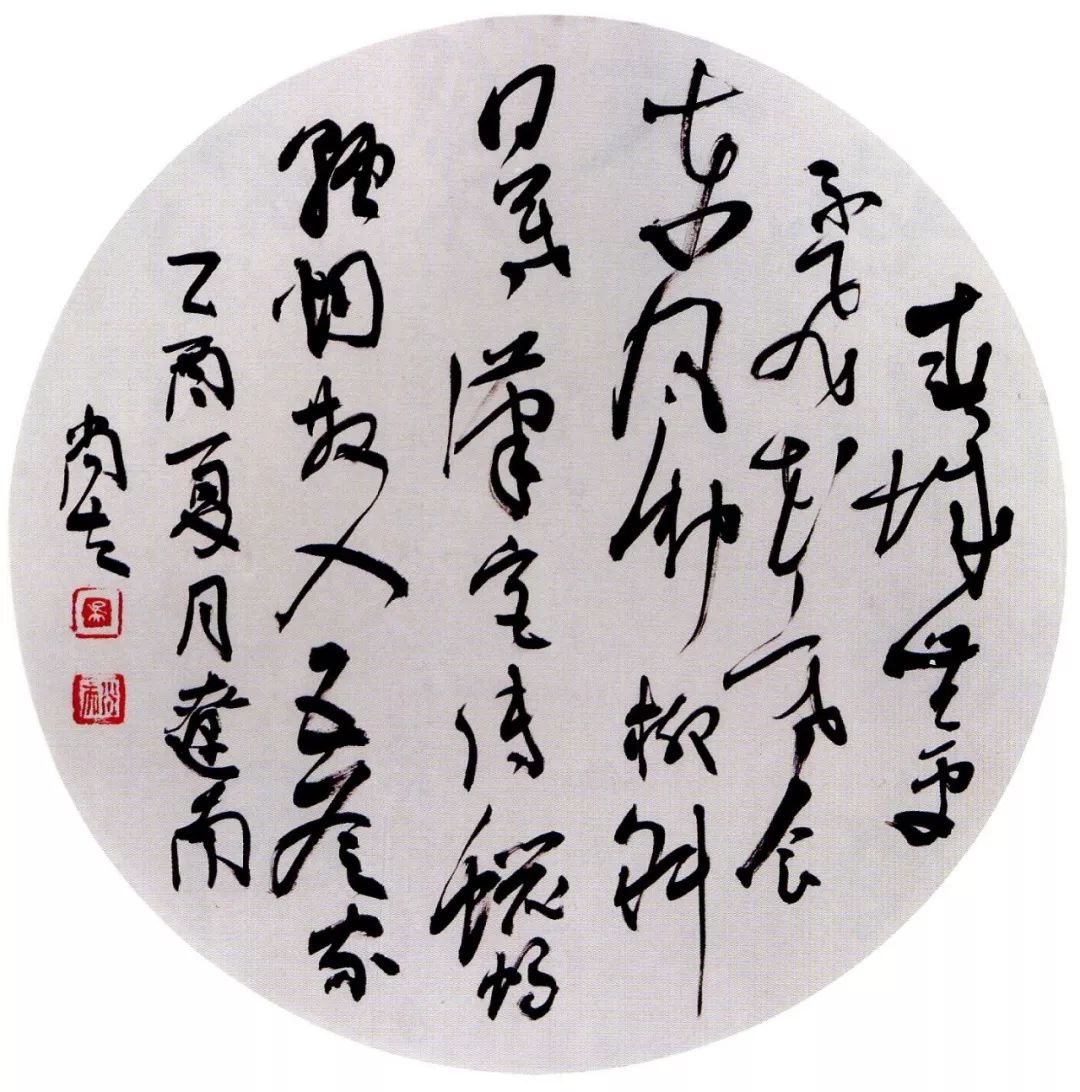 春城無處
不飛花寒食
東風御柳斜
日暮漢宮傳蠟燭
輕烟散入五侯家
乙酉夏月遼南
尚